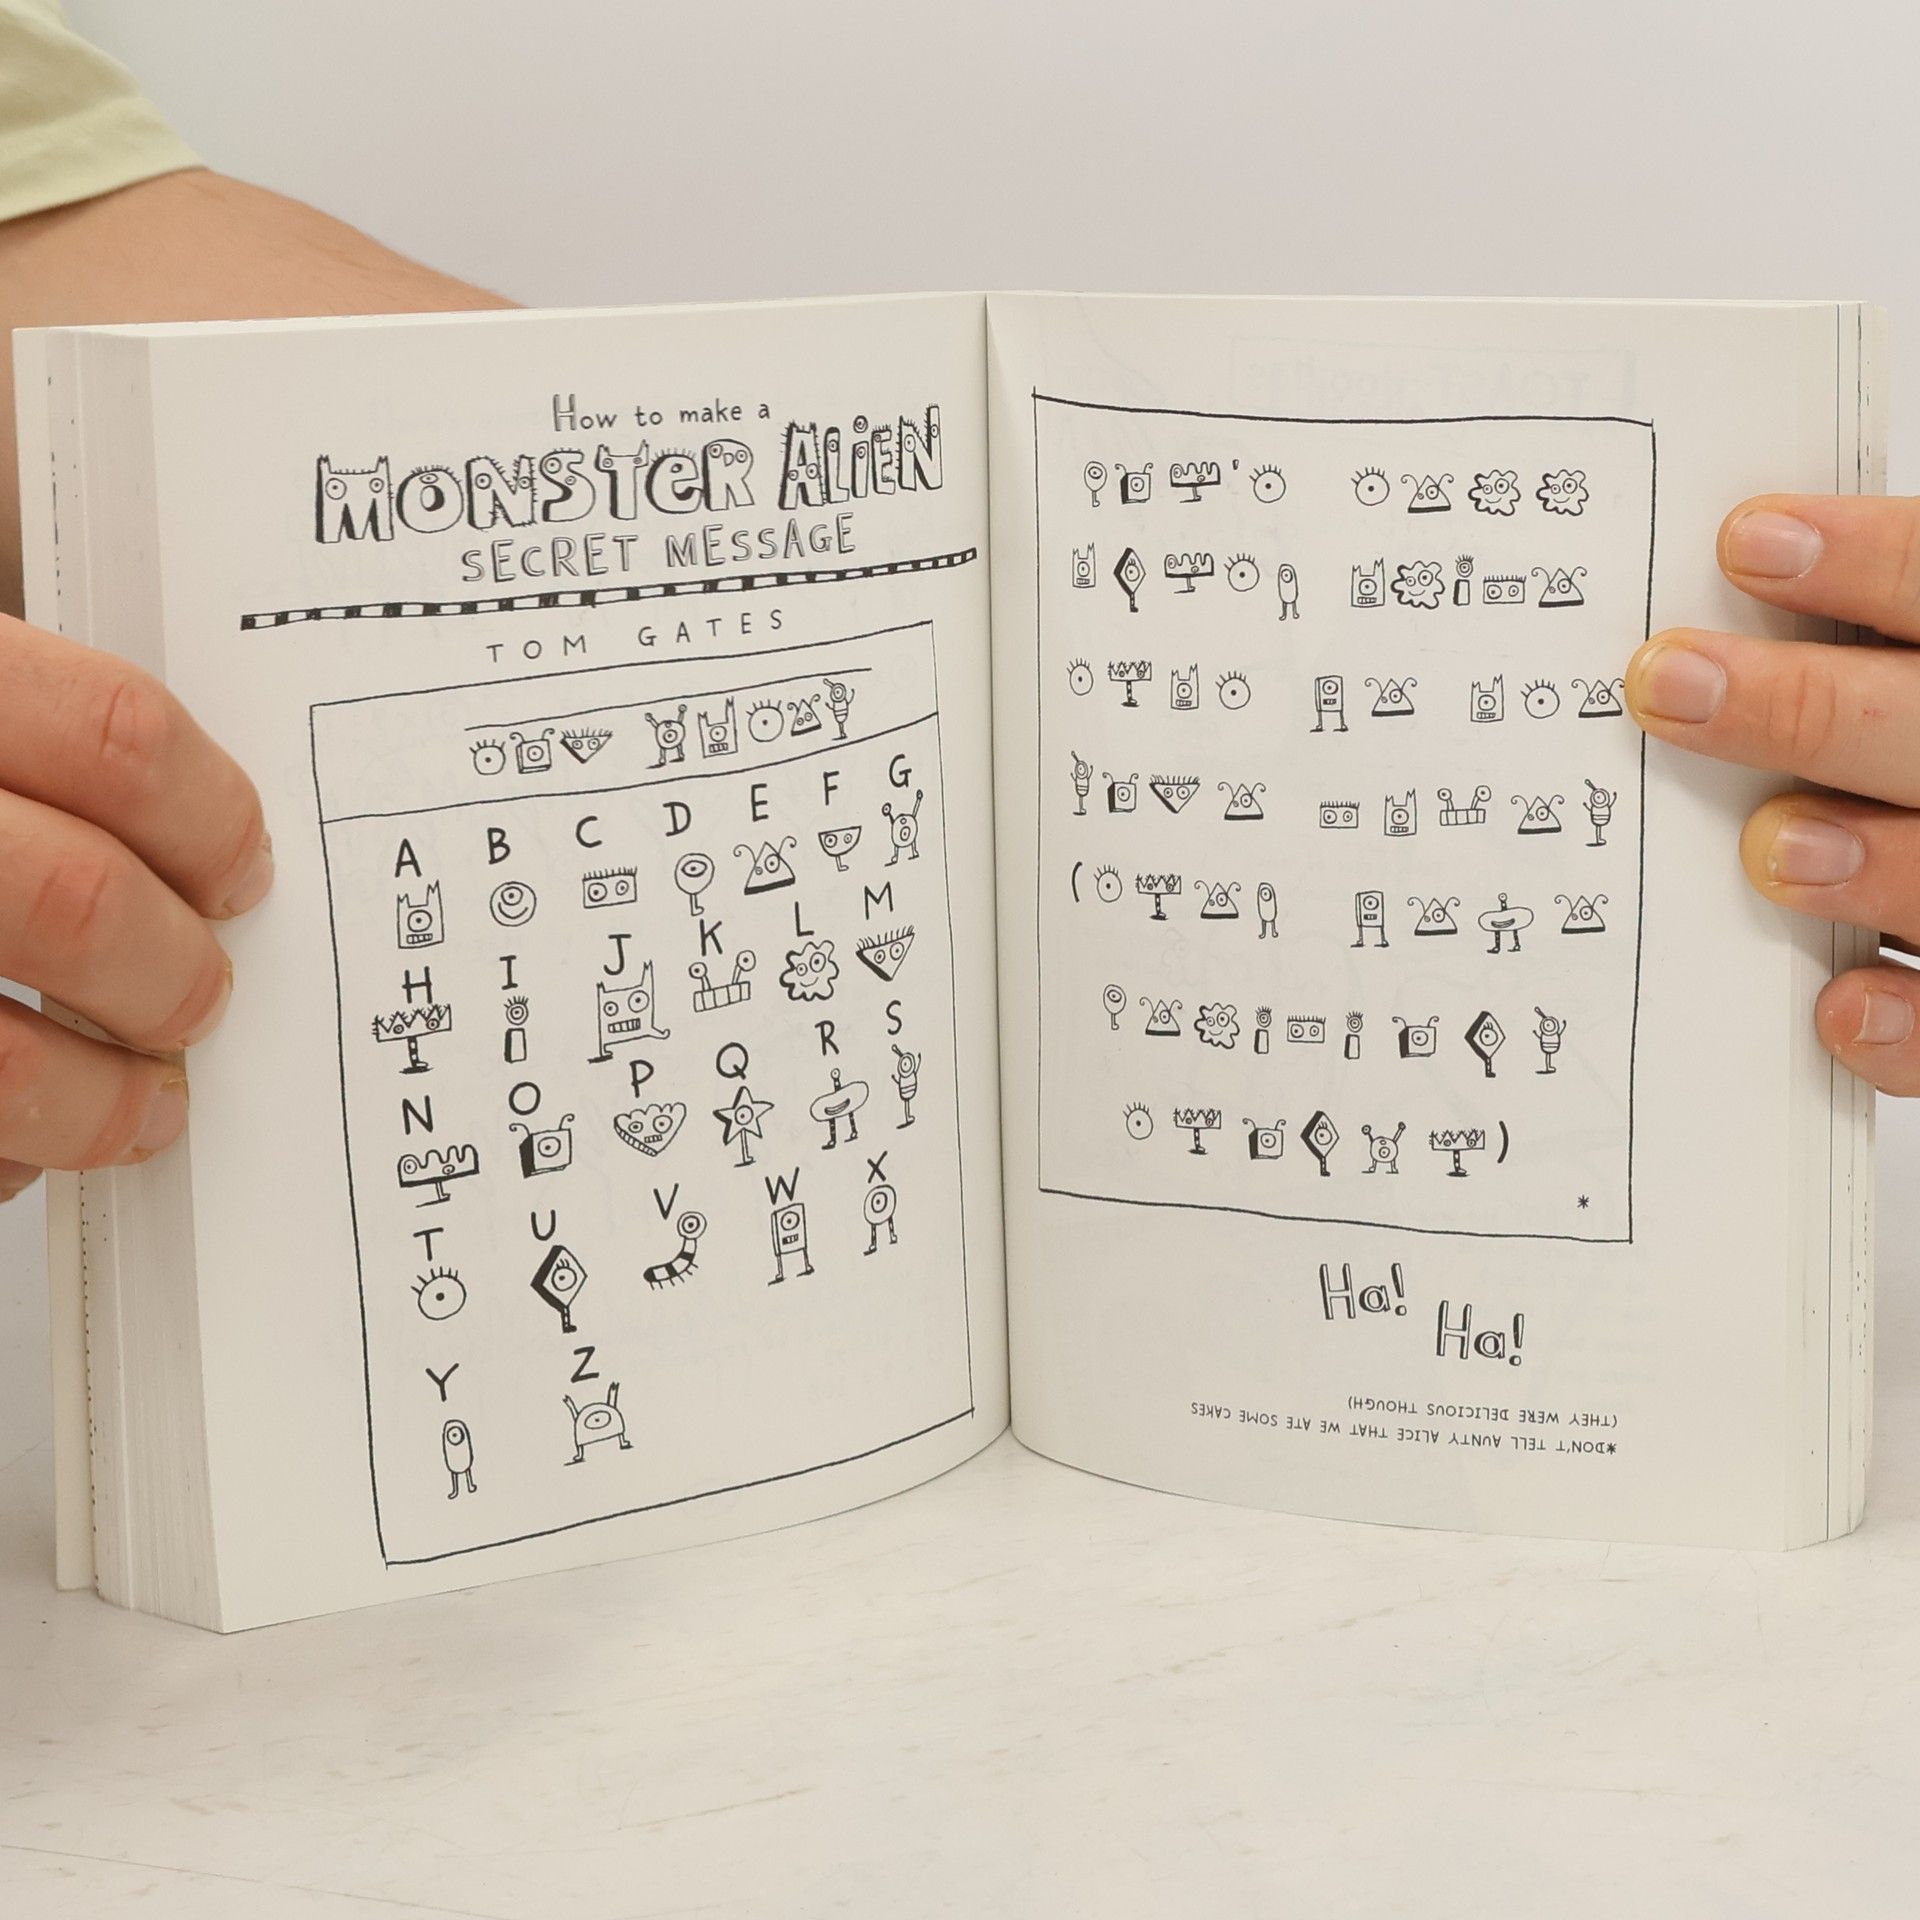 How to make a
MONSTER ALIEN
SECRET MESSAGE
TOM GATES
A B C D E F G
H I J K L M
N O P Q R S
T U V W X
Y Z
'
(
)
*
Ha!
Ha!
*DON'T TELL AUNTY ALICE THAT WE ATE SOME CAKES
(THEY WERE DELICIOUS THOUGH)